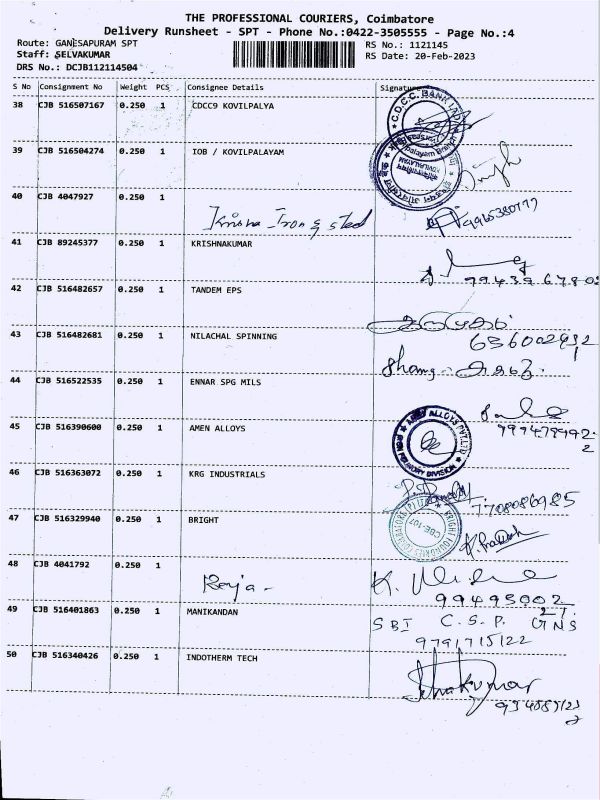 THE PROFESSIONAL COURIERS, Coimbatore
Delivery Runsheet - SPT - Phone No.:0422-3505555 - Page No.:4
Route: GANESAPURAM SPT RS No.: 1121145
Staff: SELVAKUMAR RS Date: 20-Feb-2023
DRS No.: DCJB112114504
S No Consignment No Weight PCS Consignee Details Signature
38 CJB 516507167 0.250 1 CDCC9 KOVILPALYA
C.D.C.C. BANK LTD
39 CJB 516504274 0.250 1 IOB / KOVILPALAYAM
40 CJB 4047927 0.250 1
Krisha Iron & steel
41 CJB 89245377 0.250 1 KRISHNAKUMAR
42 CJB 516482657 0.250 1 TANDEM EPS
43 CJB 516482681 0.250 1 NILACHAL SPINNING
44 CJB 516522535 0.250 1 ENNAR SPG MILS
45 CJB 516390600 0.250 1 AMEN ALLOYS
AMEN ALLOYS PVT.LTD
46 CJB 516363072 0.250 1 KRG INDUSTRIALS
7708086985
47 CJB 516329940 0.250 1 BRIGHT
CBE-107
48 CJB 4041792 0.250 1
99495002
49 CJB 516401863 0.250 1 MANIKANDAN
SBI C.S.P. GNS
9791715122
50 CJB 516340426 0.250 1 INDOTHERM TECH